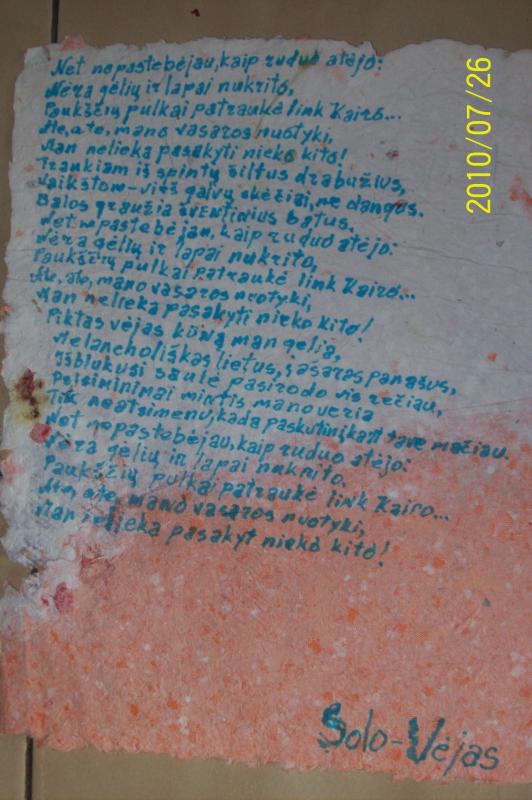 Net nepastebėjau, kaip ruduo atėjo:
Nėra gėlių ir lapai nukrito,
Paukščių pulkai patraukė link Kairo...
Ate, ate, mano vasaros nuotyki,
Man nelieka pasakyti nieko kito!
Traukiam iš spintų šiltus drabužius,
Vaikštom - virš galvų skėčiai, ne dangus.
Balos graužia šventinius batus.
Net nepastebėjau, kaip ruduo atėjo:
Nėra gėlių ir lapai nukrito,
Paukščių pulkai patraukė link Kairo...
Ate, ate, mano vasaros nuotyki,
Man nelieka pasakyti nieko kito!
Piktas vėjas kūną man gelia,
Melancholiškas lietus, į ašaras panašus,
Išblukusi saulė pasirodo vis rečiau,
Prisiminimai mintis mano veria
Tik neatsimenu, kada paskutinįkart tave mačiau.
Net nepastebėjau, kaip ruduo atėjo:
Nėra gėlių ir lapai nukrito,
Paukščių pulkai patraukė link Kairo...
Ate, ate, mano vasaros nuotyki,
Man nelieka pasakyt nieko kito!
Solo-Vėjas
2010/07/26